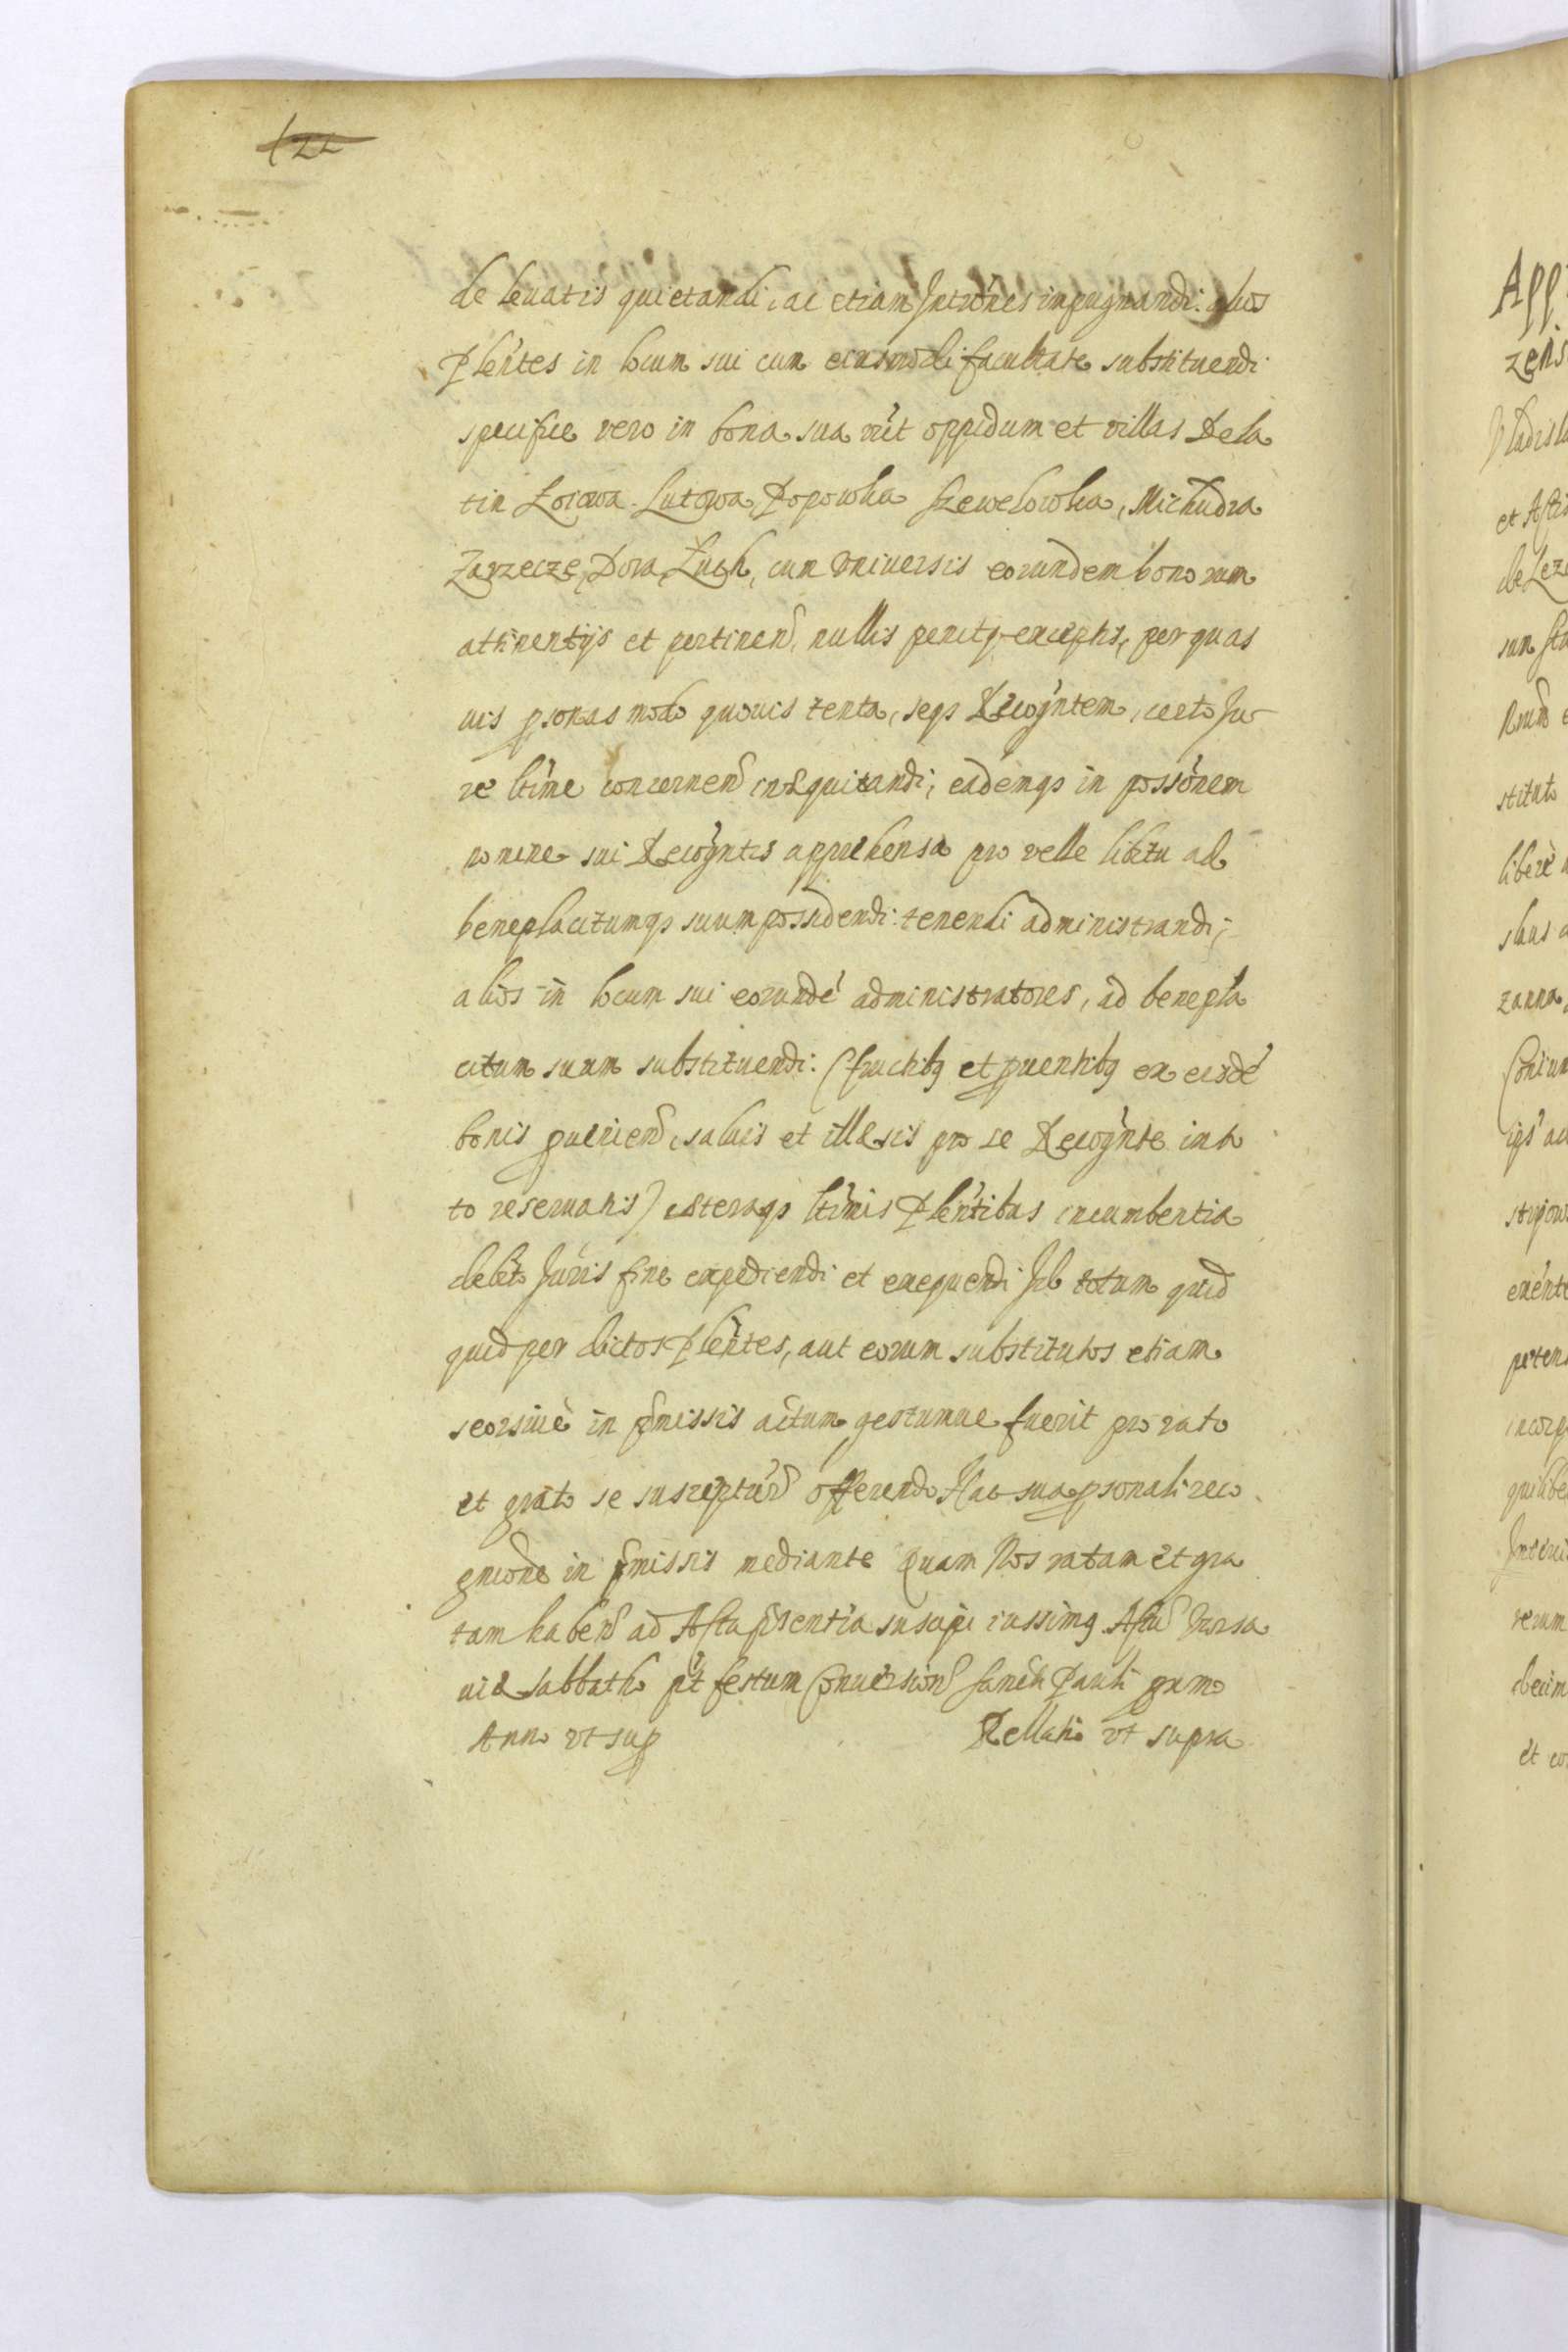 122
de levatis quietandi, ac etiam Intrônes inpugnandi: alios
Plêntes in locum sui cum eiusmodi facultate substituendi
specifice vero in bona sua vût oppidum et villas Dela
tin Łoiowa Lutowa Popowka Szewelowka, Michudra
Zarzecze, Dora, Łuch, cum vniuersis eorundem bonorum
attinentijs et pertinen, nullis penitq exceptis, per quas
uis psonas modo quouis tenta, seqs Recogntem, certo Ju
re ltime concernen inequitandi; eademqs in possônem
nomine sui Recogntis apprehensa pro velle libitu ad
beneplacitumqs suum possidendi: tenendi administrandi;
alios in locum sui eorundé administratores, ad benepla
citum suum substituendi: (fructibq et puentibq ex eisdé
bonis puenien, saluis et illesis pro se Recognte in to
to reseruatis) ceteraqs ltimis Plêntibus incumbentia
debito Juris fine expediendi et exequendi Id totum quid
quid per dictos Plêntes, aut eorum substitutos etiam
seorsiuè in pmissis actum gestumue fuerit pro rato
et grato se suscepturu offerendo Hac sua psonali reco
gnicone in pmissis mediante Quam Nos ratam et gra
tam haben ad Acta psentia suscipi iussimq Actu Varsa
uiæ Sabbatho pt festum Conuersion Sancti Pauli pxmo
Anno vt sup Rellatio vt supra